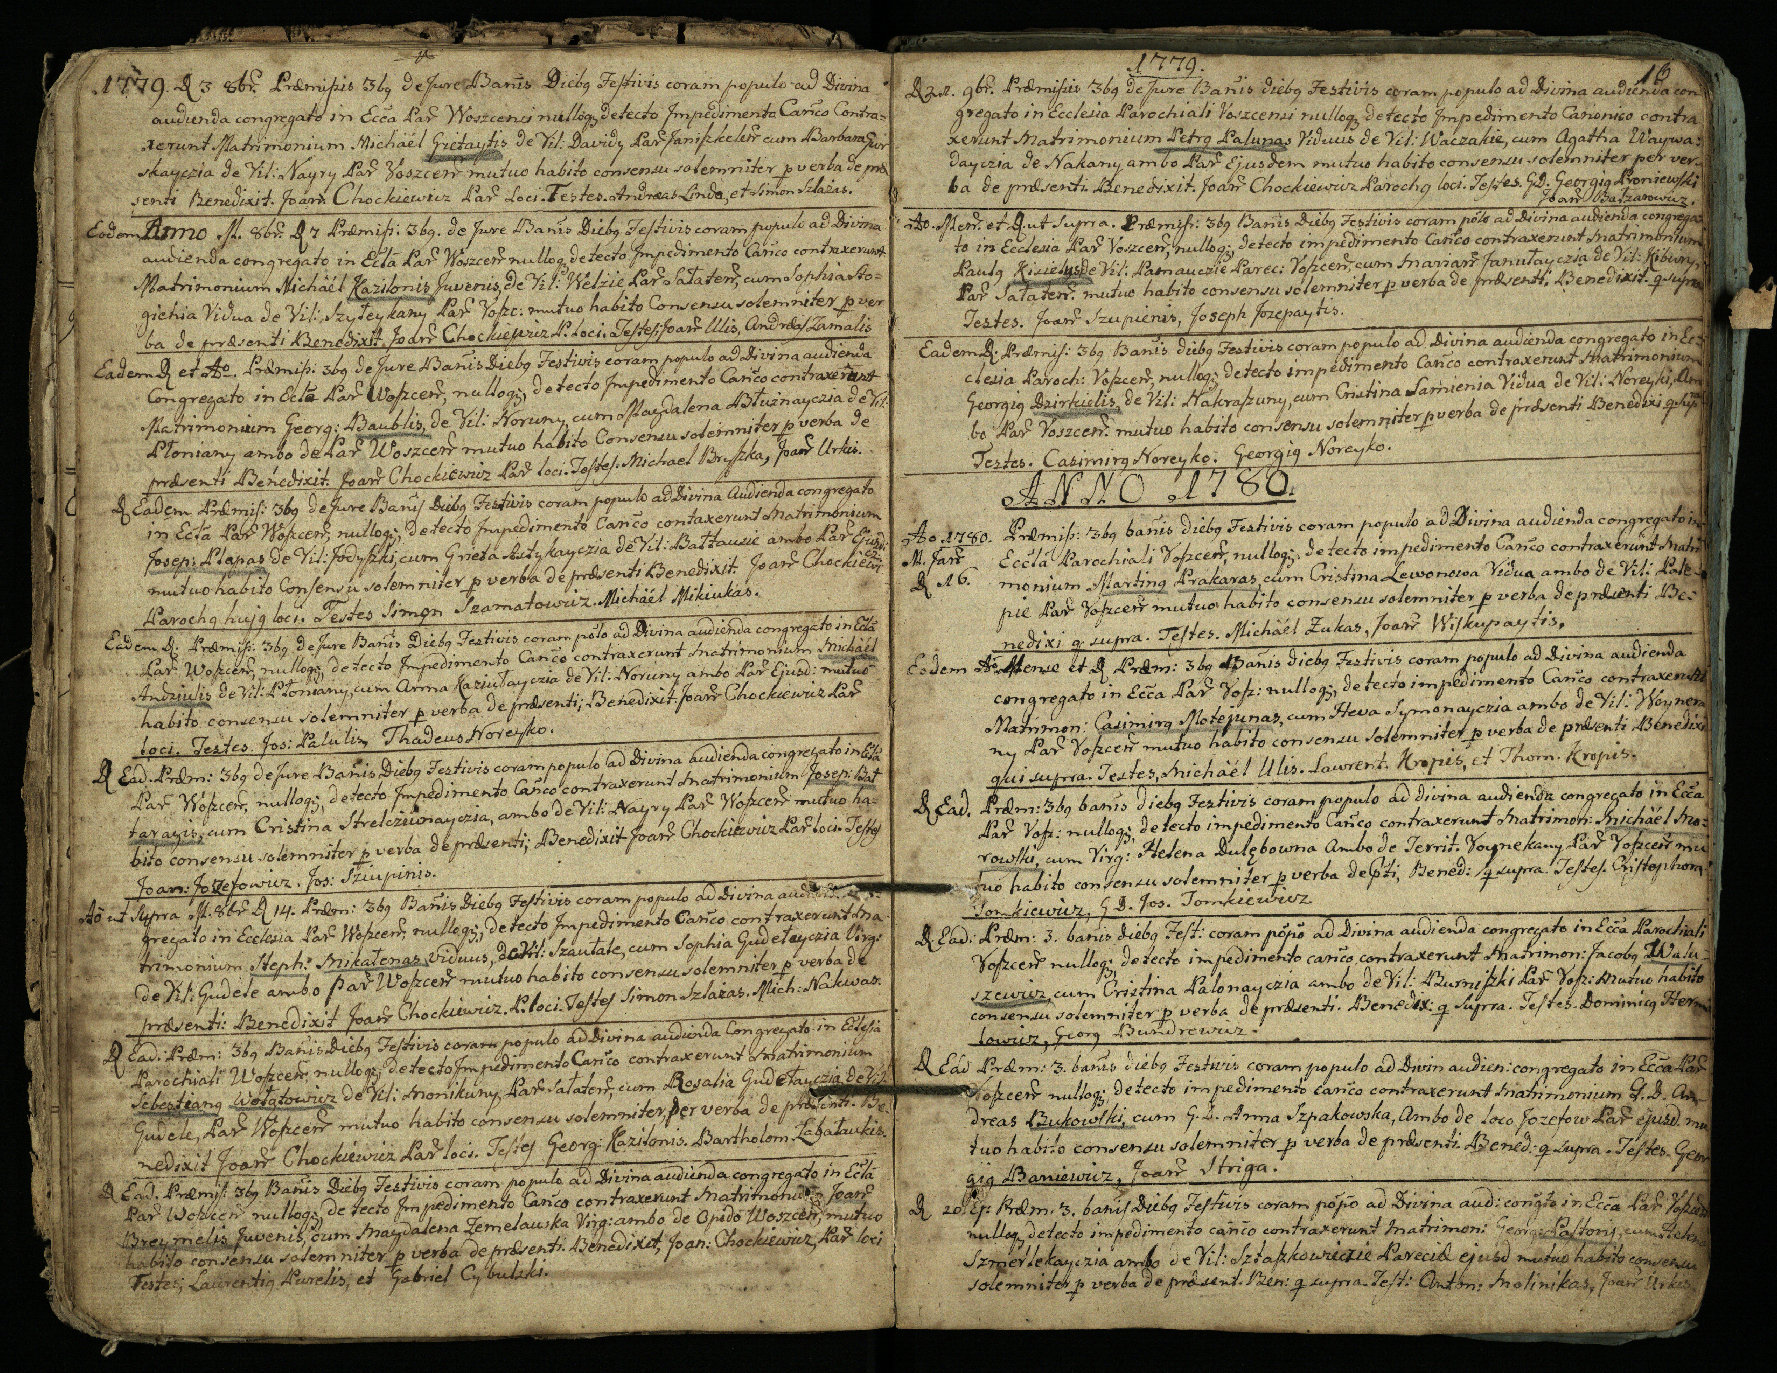 1779. D 3 8br. Præmissis 3bg de Jure Banis Diebg Festivis coram populo ad Divina
audienda congregato in Ecca Par Woszcenci nulloq; detecto Impedimento Canco Contra-
xerunt Matrimonium Michaël Grictaytis de Vil. Davidy Par Janiszkcien cum Barbara
skayczia de Vil: Nayry Par Voszcen mutuo habito consensu solemniter p verba de præ
senti Benedixit. Joan Chockiewicz Par Loci. Testes. Andreas Linde, et Simon Szlażas.
Eodem Anno M. 8br. D 7 Præmiss: 3bg. de Jure Banis Diebg Festivis coram populo ad Divina
audienda congregato in Ecla Par Woszcen nulloq detecto Impedimento Canco contraxerunt
Matrimonium Michaël Kazilonis Juvenis, de Vil: Wełzie Par Sałaten, cum Sophia Ato=
gichia Vidua de Vil: Szyłeykany Par Voszc: mutuo habito Consensu solemniter p ver
ba de præsenti Benedixit Joan Chockiewicz P. Loci. Testes: Joan Ulis, Andreas Zamalis
Eadem D et Ao. Præmiss: 3bg de Jure Banis Diebg Festivis coram populo ad Divina audienda
Congregato in Ecla Par Woszcen, nulloq; detecto Impedimento Canco contraxerunt
Matrimonium Georg: Baublis, de Vil: Noruny, cum Magdalena Błuznayczia de Vil:
Płoniany ambo de Par Woszcen mutuo habito Consensu solemniter p verba de
præsenti Benedixit. Joan Chockiewicz Par loci. Testes. Michael Bryszka, Joan Urkis.
D Eadem Præmiss: 3bg de Jure Banis Diebg Festivis coram populo ad Divina Audienda congregato
in Ecla Par Woszcen, nulloq; detecto Impedimento Canco contaxerunt Matrimonium
Josep: Plepas de Vil: Jodyszki, cum Grieta Autykayczia de Vil: Bałtausie ambo Par Ejusd:
mutuo habito Consensu solemniter p verba de præsenti Benedixit. Joan Chockiewicz
Parochg hujg loci. Testes Simon Szamatowicz. Michaël Mikiukas.
Eadem D: Præmiss: 3bg de Jure Banis Diebg Festivis coram pōlo ad Divina audienda congregato in Ecla
Par Woszcen, nulloq; detecto Impedimento Canco contraxerunt Matrimonium Michaël
Andziulis de Vil: Płoniany, cum Anna Kaziułayczia de Vil: Noriuny ambo Par Ejusd: mutuo
habito consensu solemniter p verba de præsenti; Benedixit Joan Chockiewicz Par
loci. Testes. Jos: Palulis, Thadeus Noreyko.
D Ead. Præm: 3bg de Jure Banis Diebg Festivis coram populo ad Divina audienda congregato in Ecla
Par Woszcen, nulloq; detecto Impedimento Canco contraxerunt Matrimonium Josep: Bat
tarayis, cum Cristina Strelcziunayczia, ambo de Vil: Nayry Par Woszcen mutuo ha-
bito consensu solemniter p verba de præsenti; Benedixit Joan Chockiewicz Par loci. Testes
Joan: Jozefowicz. Jos: Sziupinis.
Ao ut Supra M. 8br D 14. Præm: 3bg Banis Diebg Festivis coram populo ad Divina
gregato in Ecclesia Par Woszcen, nulloq; detecto Impedimento Canco contraxerunt Ma
trimonium Steph: Mikałenas viduus, de Vil: Szautale, cum Sophia Gudełayczia Virg:
de Vil: Gudele ambo Par Woszcen mutuo habito consensu solemniter p verba de
præsenti: Benedixit Joan Chockiewicz. P. loci. Testes Simon Szlażas. Mich: Nakwas.
D Ead: Præm: 3bg Banis Diebg Festivis coram populo ad Divina audienda Congregato in Eclesia
Parochiali Woszcen, nulloq; detecto Impedimento Canco contraxerunt Matrimonium
Sebastiang Wołatowicz de Vil: Monikuny, Par Sałaten, cum Rosalia Gudełayczia de Vil
Gudele, Par Woszcen mutuo habito consensu solemniter, per verba de præsenti. Be
nedixit Joan Chockiewicz Par loci. Testes Georg Kazilonis. Bartholom Łabałaukis.
D Ead. Præmiss 3bg Banis Diebg Festivis coram populo ad Divina audienda congregato in Ecla
Par Woszcen nulloq; detecto Impedimento Canco contraxerunt Matrimoniu Joan
Breymelis Juvenis, cum Magdalena Zemełauska Virg: ambo de Opido Woszcen, mutuo
habito consensu solemniter p verba de præsenti Benedixit, Joan: Chockiewicz, Par loci
Testes; Laurentig Purelis, et Gabriel Cybulski.
1779.
16
D 21. 9br. Præmissis 3bg de Jure Banis diebg Festivis coram populo ad Divina audienda con
gregato in Ecclesia Parochiali Voszcensi nulloq detecto Impedimento Canonico contra
xerunt Matrimonium Petrg Palunas Viduus de Vil: Waczakie, cum Agatha Waywa=
dayczia de Nakany ambo Par Ejusdem mutuo habito consensu solemniter per ver-
ba de præsenti. Benedixit. Joan Chockiewicz Parochg loci. Testes. GD. Georgig Proniewski
Joan Balzarowicz.
Ao. Men. et D. ut Supra. Præmiss: 3bg Banis Diebg Festivis coram pōlo ad Divina audienda congrega
to in Ecclesia Par Voszcen, nulloq; detecto impedimento Canco contraxerunt Matrimonium
Paulg Kisielus de Vil: Pamauczie Parec: Voszcen, cum Marian Janulayczia de Vil: Kibury,
Par Sałaten. mutuo habito consensu solemniter p verba de præsenti. Benedixit. q supra
Testes. Joan Szupienis, Joseph Jozepaytis.
Eadem D: Præmiss: 3bg Banis diebg Festivis coram populo ad Divina audienda congregato in Ec-
clesia Paroch: Voszcen, nulloq; detecto impedimento Canco contraxerunt Matrimonium
Georgig Dzirkielis, de Vil: Nakraszuny, cum Cristina Sarnienia Vidua de Vil: Noreyki, Am
bo Par Voszcen. mutuo habito consensu solemniter p verba de præsenti Benedixi q supra
Testes. Casimirg Noreyko. Georgig Noreyko.
ANNO 1780.
Ao. 1780. Præmiss: 3bg banis diebg Festivis coram populo ad Divina audienda congregato in
M. Jan Eccla Parochiali Voszcen, nulloq; detecto impedimento Canco contraxerunt Matri
D 16. monium Marting Prakaras, cum Cristina Lewonowa Vidua ambo de Vil: Pale-
pie Par Voszcen mutuo habito consensu solemniter p verba de præsenti Be-
nedixi q supra. Testes. Michäel Zukas, Joan Wiskupaytis.
Eodem Ao Mense et D Præm: 3bg Banis diebg Festivis coram populo ad Divina audienda
congregato in Ecca Par Vosz: nulloq; detecto impedimento Canco contraxerunt
Matrimon: Casimirg Motejunas, cum Heva Symonayczia ambo de Vil: Woynera
ny Par Voszcen mutuo habito consensu solemniter p verba de præsenti Benedixi
qui supra. Testes, Michäel Ulis. Laurent. Kropis, et Thom. Kropis.
D Ead. Præm: 3bg banis diebg Festivis coram populo ad divina audienda congregato in Ecca
Par Vosz: nulloq; detecto impedimento Canco contraxerunt Matrimon: Michäel Mo=
rowski, cum Virg: Helena Dulębowna Ambo de Territ. Voynekany Par Voszcen mu
tuo habito consensu solemniter p verba de pti, Bened: q supra. Testes. Cristophorg
Tomkiewicz, G D. Jos. Tomkiewicz
D Ead: Præm: 3. banis diebg Fest: coram pōpo ad Divina audienda congregato in Ecca Parochiali
Voszcen nulloq; detecto impedimento canco contraxerunt Matrimon: Jacobg Walu-
szewicz, cum Cristina Palonayczia ambo de Vil: Burniszki Par Vosz: Mutuo habito
consensu solemniter p verba de præsenti. Benedix: q supra. Testes. Dominicg Herm
łowicz, Georg Bundrewicz.
D Ead Præm: 3. banis diebg Festivis coram populo ad Divin audien: congregato in Ecca Par
Voszcen nulloq; detecto impedimento canco contraxerunt Matrimonium G. D. An
dreas Bukowski, cum G. D. Anna Szpakowska, Ambo de Loco Jozefow Par ejusd. mu
tuo habito consensu solemniter p verba de præsenti. Bened: q supra. Testes. Geor
gig Baniewicz, Joan Striga.
D 20. Ej: Præm. 3. banis Diebg Festivis coram pōpo ad Divina aud: congto in Ecca Par Voszcen
nulloq detecto impedimento canco contraxerunt Matrimon: Georg: Pastoris, cum Helena
Szmerlekayczia ambo de Vil: Sztaszkowicie Pareciæ ejusd mutuo habito consensu
solemniter p verba de præsent. Ben: q supra. Test: Anton: Molinikas, Joan Urkis.